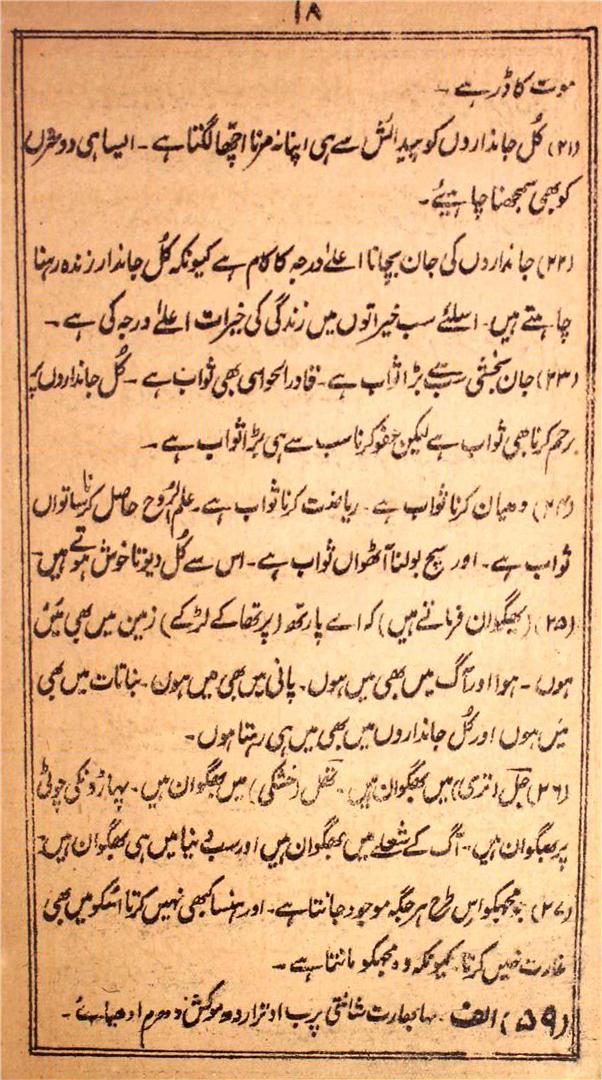 ۱۸
موت کا ڈر ہے۔
(۲۱) کُل جانداروں کو پیدائش سے ہی اپنا نہ مرنا اچھا لگتا ہے۔ ایسا ہی دوسروں
کو بھی سمجھنا چاہیئے۔
(۲۲) جانداروں کی جان بچانا اعلےٰ درجہ کا کام ہے کیونکہ کُل جاندار زندہ رہنا
چاہتے ہیں۔ اسلئے سب خیراتوں میں زندگی کی خیرات اعلےٰ درجہ کی ہے۔
(۲۳) جان بخشی سب سے بڑا ثواب ہے۔ قادر الحواسی بھی ثواب ہے۔ کُل جانداروں پر
رحم کرنا بھی ثواب ہے لیکن عفو کرنا سب سے ہی بڑا ثواب ہے۔
(۲۴) دھیان کرنا ثواب ہے۔ ریاضت کرنا ثواب ہے۔ علم الرُوح حاصل کرنا ساتواں
ثواب ہے۔ اور سچ بولنا آٹھواں ثواب ہے۔ اس سے کُل دیوتا خوش ہوتے ہیں۔
(۲۵) (بھگوان فرماتے ہیں) کہ اے پارتھ (پرتھا کے لڑکے) زمین میں بھی مَیں
ہوں۔ ہوا اور آگ میں بھی میں ہوں۔ پانی میں بھی میں ہوں۔ نباتات میں بھی
میں ہوں اور کُل جانداروں میں بھی میں ہی رہتا ہوں۔
(۲۶) جَل (تری) میں بھگوان ہیں۔ تھَل (خشکی) میں بھگوان ہیں۔ پہاڑونکی چوٹی
پر بھگوان ہیں۔ آگ کے شعلے میں بھگوان ہیں اور سب دنیا میں ہی بھگوان ہیں۔
(۲۷) جو مجھکو اس طرح ہر جگہ موجود جانتا ہے۔ اور ہنسا کبھی نہیں کرتا اسکو میں بھی
غارت نہیں کرتا۔ کیونکہ وہ مجھکو مانتا ہے۔
(۵۹) الف۔ مہابھارت شانتی پرب اوترارده موکش دھرم ادھیائے۔